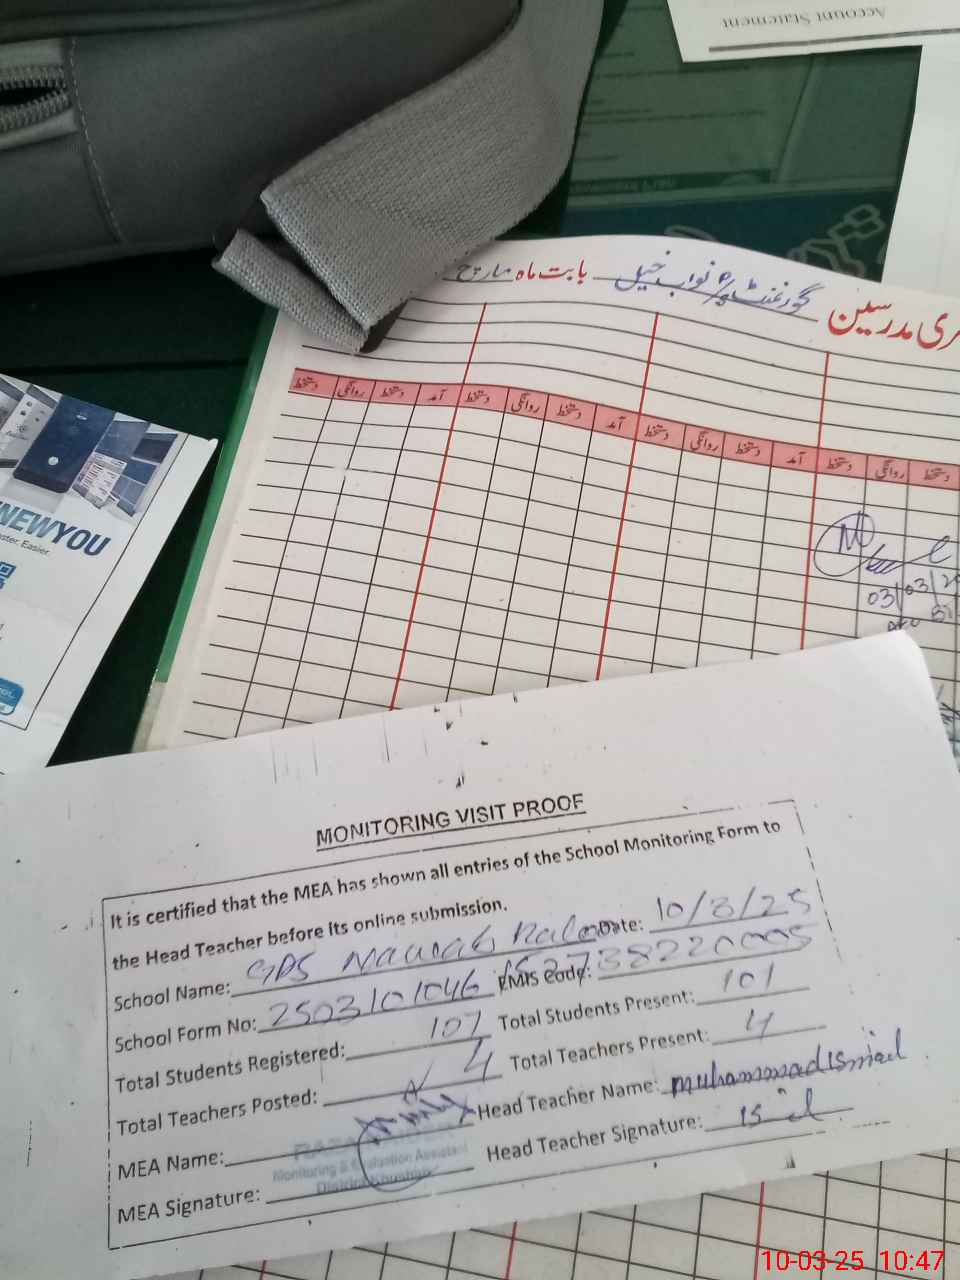 Account Statement
ری مدرسین گورنمنٹ پ/س نواب خیل بابت ماہ مارچ
دستخط روانگی دستخط آمد دستخط روانگی دستخط آمد دستخط روانگی دستخط آمد دستخط روانگی دستخط
NEWYOU
ster. Easier.
03/03/2
MONITORING VISIT PROOF
It is certified that the MEA has shown all entries of the School Monitoring Form to
the Head Teacher before its online submission.
School Name: GPS Nawab Date: 10/3/25
School Form No: 2503101046 EMIS Code: 38220005
Total Students Registered: 107 Total Students Present: 101
Total Teachers Posted: 4 Total Teachers Present: 4
MEA Name: Head Teacher Name: Muhammad Ismail
Monitoring & Evaluation Assistant
District Khushab
MEA Signature: Head Teacher Signature:
10-03-25 10:47